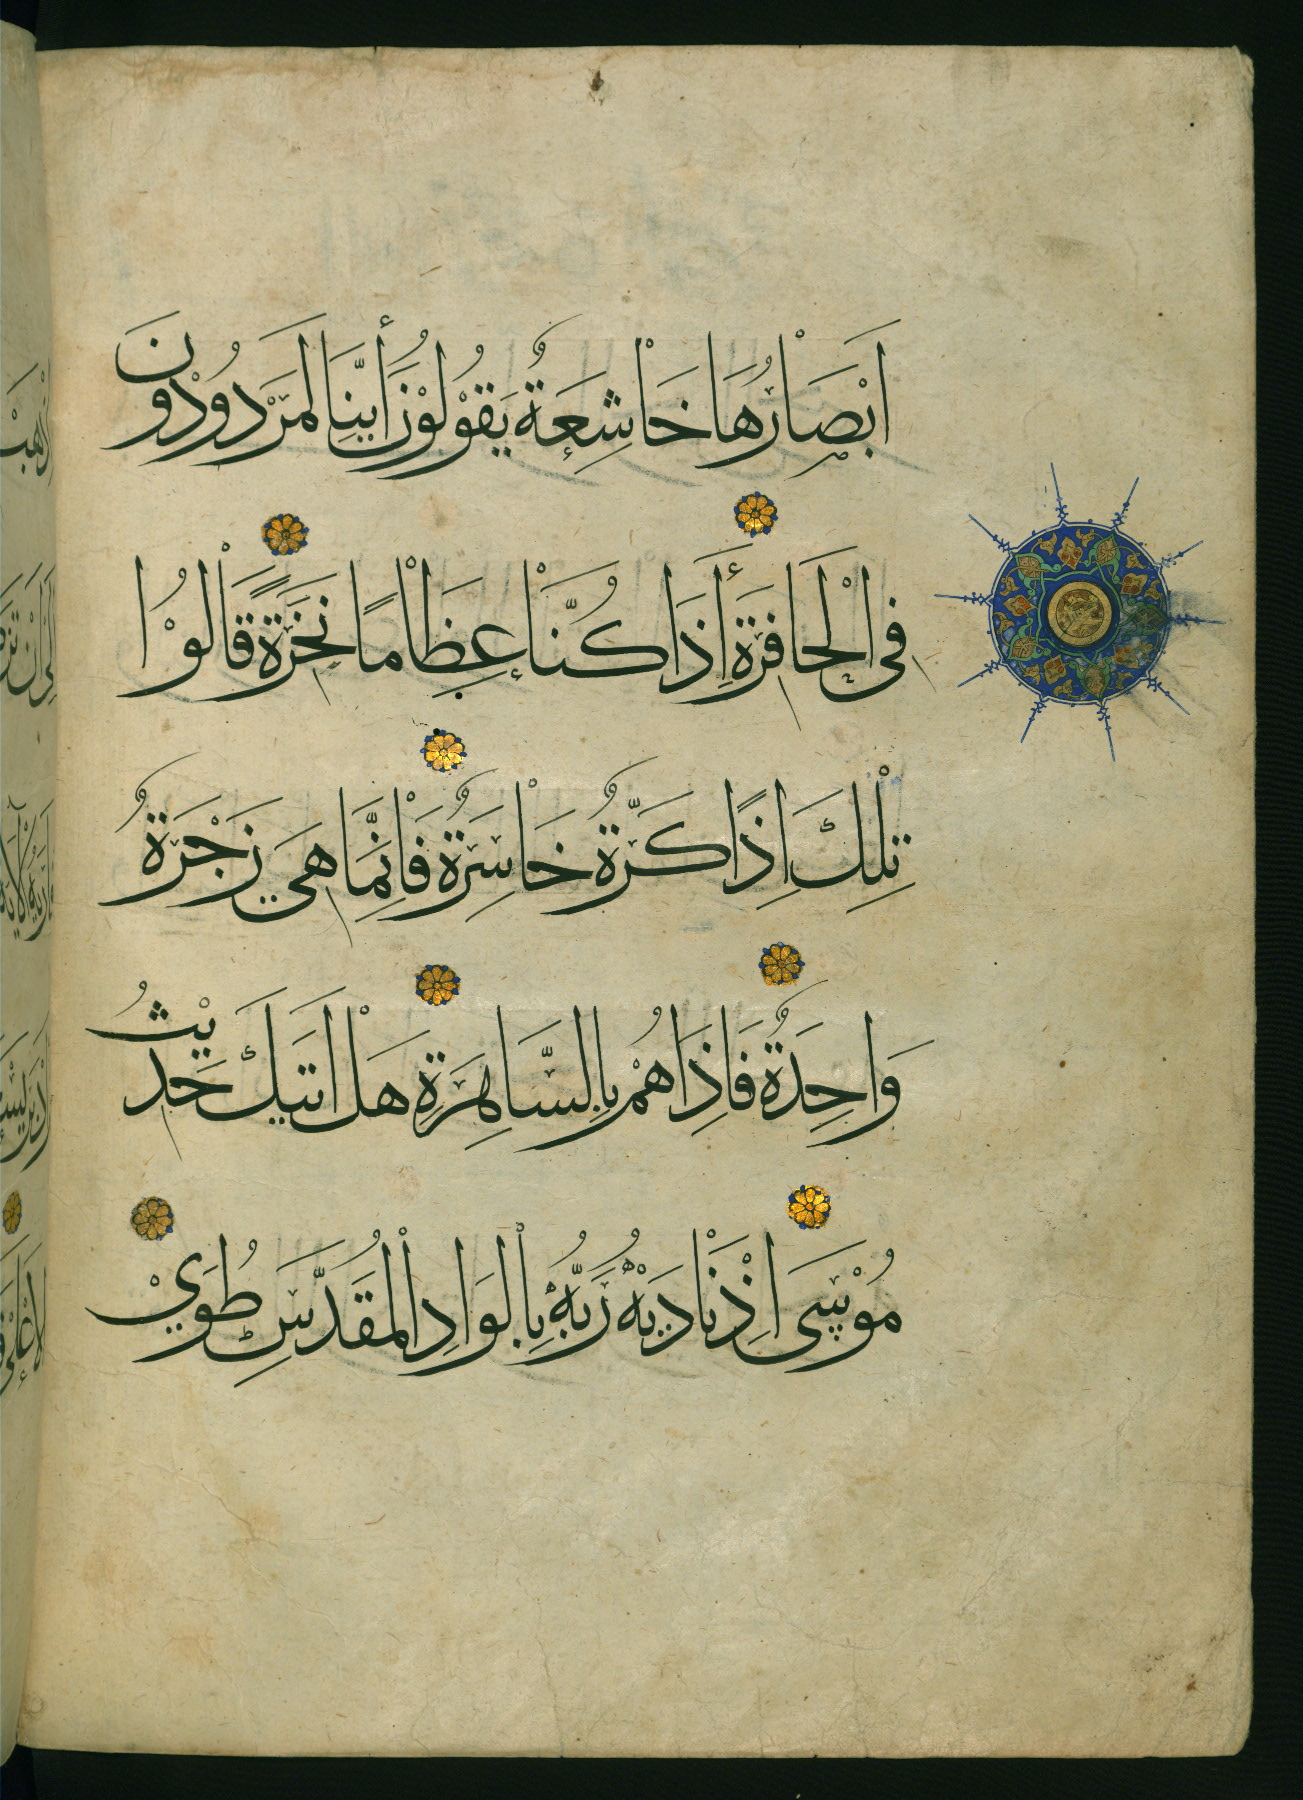 اَبْصَارُهَا خَاشِعَةٌ يَقُولُوْنَ أَاِنَّا لَمَرْدُودُوْنَ
فِي الْحَافِرَةِ أَاِذَا كُنَّا عِظَامًا نَخِرَةً قَالُوْا
تِلْكَ اِذًا كَرَّةٌ خَاسِرَةٌ فَاِنَّمَا هِيَ زَجْرَةٌ
وَاحِدَةٌ فَاِذَا هُمْ بِالسَّاهِرَةِ هَلْ اَتٰيكَ حَدِيْثُ
مُوْسٰى اِذْ نَادٰيهُ رَبُّهُ بِالْوَادِ الْمُقَدَّسِ طُوًي